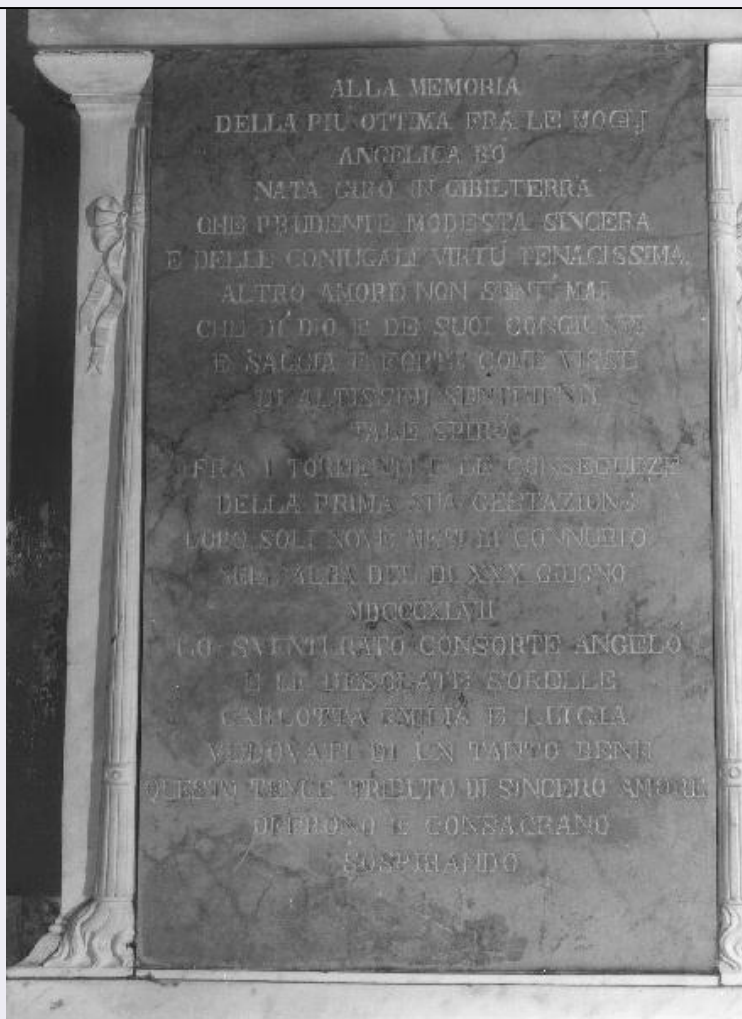 ALLA MEMORIA
DELLA PIÙ OTTIMA FRA LE MOGLJ
ANGELICA BÒ
NATA GIRÒ IN GIBILTERRA
CHE PRUDENTE MODESTA SINCERA
E DELLE CONIUGALI VIRTÙ TENACISSIMA
ALTRO AMORE NON SENTÌ MAI
CHE DI DIO E DE SUOI CONGIUNTI
E SAGGIA E FORTE COME VISSE
DI ALTISSIMI SENTIMENTI
TALE SPIRÒ
FRA I TORMENTI E LE CONSEGUEZE
DELLA PRIMA SUA GESTAZIONE
DOPO SOLI NOVE MESI DI CONNUBIO
SULL'ALBA DEL DÌ XXX GIUGNO
MDCCCXLVII
LO SVENTURATO CONSORTE ANGELO
E LE DESOLATE SORELLE
CARLOTTA EMILIA E LUIGIA
VEDOVATI DI UN TANTO BENE
QUESTO TENUE TRIBUTO DI SINCERO AMORE
OFFRONO E CONSACRANO
SOSPIRANDO